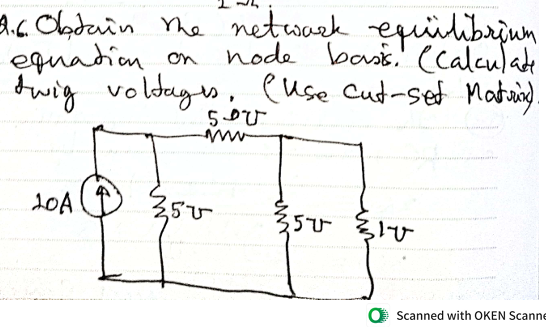 Q.6 Obtain the network equilibrium
equation on node basis. (Calculate
twig voltages. (Use Cut-set Matrix)
5℧
10A
5℧
5℧
1℧
Scanned with OKEN Scanne